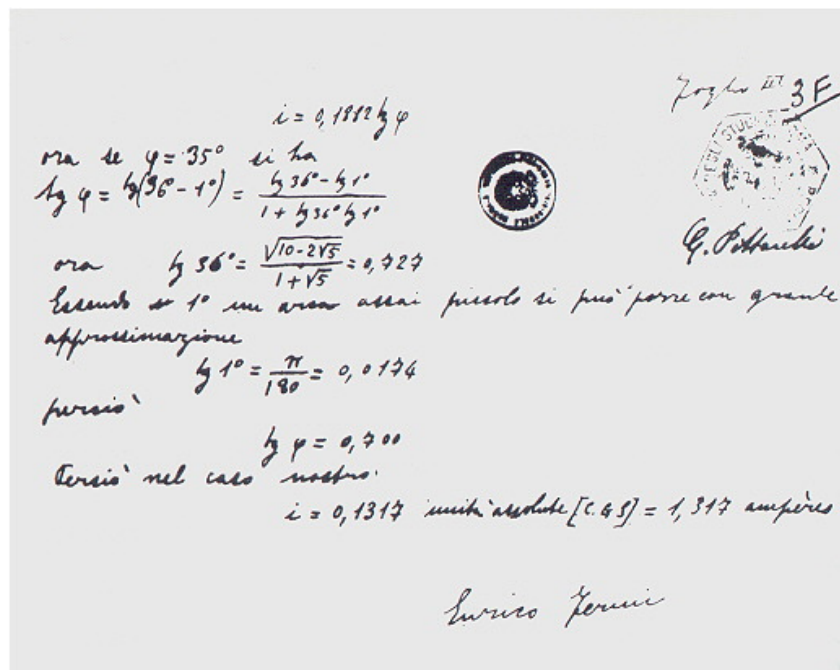 Foglio III 3F
i = 0,1882 tg φ
ora se φ = 35° si ha
tg φ = tg(36° - 1°) = tg 36° - tg 1° / 1 + tg 36° tg 1°
G. Pittarelli
ora tg 36° = √10-2√5 / 1+√5 = 0,727
Essendo 1° un arco assai piccolo si può porre con grande
approssimazione
tg 1° = π / 180 = 0,0174
perciò
tg φ = 0,700
Perciò nel caso nostro.
i = 0,1317 unità assolute [C.G.S] = 1,317 ampères
Enrico Fermi